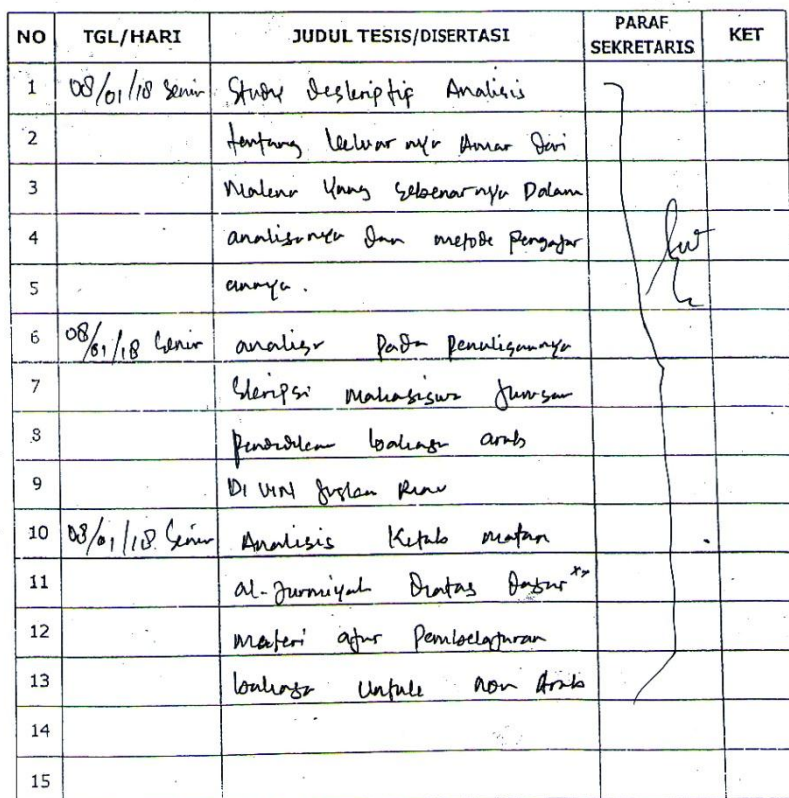 NO TGL/HARI JUDUL TESIS/DISERTASI PARAF SEKRETARIS KET
1 08/01/18 Senin Study Deskriptip Analisis
2 tentang keluarnya Amar Dari
3 Makna Yang Sebenarnya Dalam
4 analisanya Dan metode Pengajar
5 annya.
6 08/01/18 Senin analisa Pada Penulisannya
7 Skripsi Mahasiswa Jurusan
8 Pendidikan bahasa arab
9 Di UIN Suska Riau
10 08/01/18 Senin Analisis Kitab matan
11 al-Jurmiyah Diatas Dasar
12 materi ajar Pembelajaran
13 bahasa Untuk non Arab
14
15